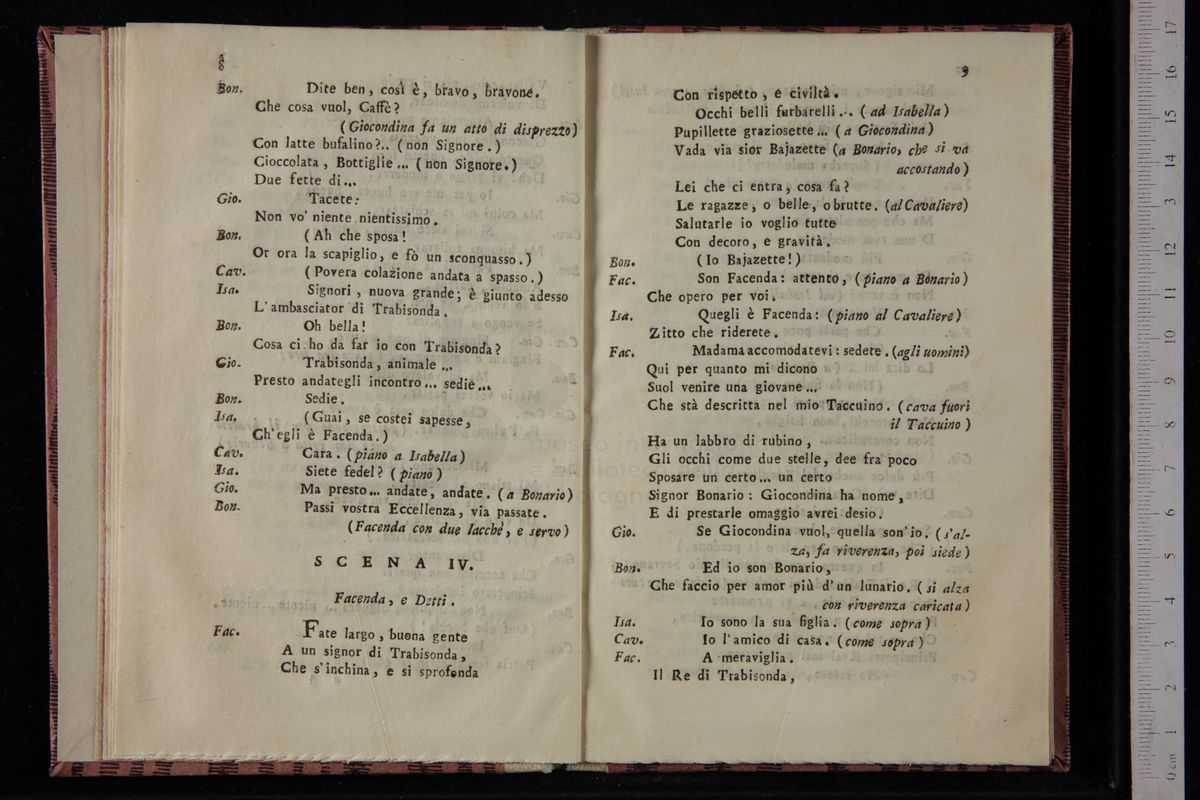 8
Bon. Dite ben, così è, bravo, bravone.
Che cosa vuol, Caffè?
(Giocondina fa un atto di disprezzo)
Con latte bufalino?.. (non Signore.)
Cioccolata, Bottiglie ... (non Signore.)
Due fette di...
Gio. Tacete:
Non vo' niente nientissimo.
Bon. (Ah che sposa!
Or ora la scapiglio, e fò un sconquasso.)
Cav. (Povera colazione andata a spasso.)
Isa. Signori, nuova grande; è giunto adesso
L'ambasciator di Trabisonda.
Bon. Oh bella!
Cosa ci ho da far io con Trabisonda?
Gio. Trabisonda, animale ...
Presto andategli incontro... sedie...
Bon. Sedie.
Isa. (Guai, se costei sapesse,
Ch'egli è Facenda.)
Cav. Cara. (piano a Isabella)
Isa. Siete fedel? (piano)
Gio. Ma presto... andate, andate. (a Bonario)
Bon. Passi vostra Eccellenza, via passate.
(Facenda con due lacchè, e servo)
SCENA IV.
Facenda, e Detti.
Fac. Fate largo, buona gente
A un signor di Trabisonda,
Che s'inchina, e si sprofonda
9
Con rispetto, e civiltà.
Occhi belli furbarelli... (ad Isabella)
Pupillette graziosette... (a Giocondina)
Vada via sior Bajazette (a Bonario, che si va
accostando)
Lei che ci entra, cosa fa?
Le ragazze, o belle, o brutte. (al Cavaliere)
Salutarle io voglio tutte
Con decoro, e gravità.
Bon. (Io Bajazette!)
Fac. Son Facenda: attento, (piano a Bonario)
Che opero per voi.
Isa. Quegli è Facenda: (piano al Cavaliere)
Zitto che riderete.
Fac. Madama accomodatevi: sedete. (agli uomini)
Qui per quanto mi dicono
Suol venire una giovane...
Che stà descritta nel mio Taccuino. (cava fuori
il Taccuino)
Ha un labbro di rubino,
Gli occhi come due stelle, dee fra poco
Sposare un certo... un certo
Signor Bonario: Giocondina ha nome,
E di prestarle omaggio avrei desio.
Gio. Se Giocondina vuol, quella son'io. (s'al-
za, fa riverenza, poi siede)
Bon. Ed io son Bonario,
Che faccio per amor più d'un lunario. (si alza
con riverenza caricata)
Isa. Io sono la sua figlia. (come sopra)
Cav. Io l'amico di casa. (come sopra)
Fac. A meraviglia.
Il Re di Trabisonda,
0 cm 1 2 3 4 5 6 7 8 9 10 11 12 13 14 15 16 17